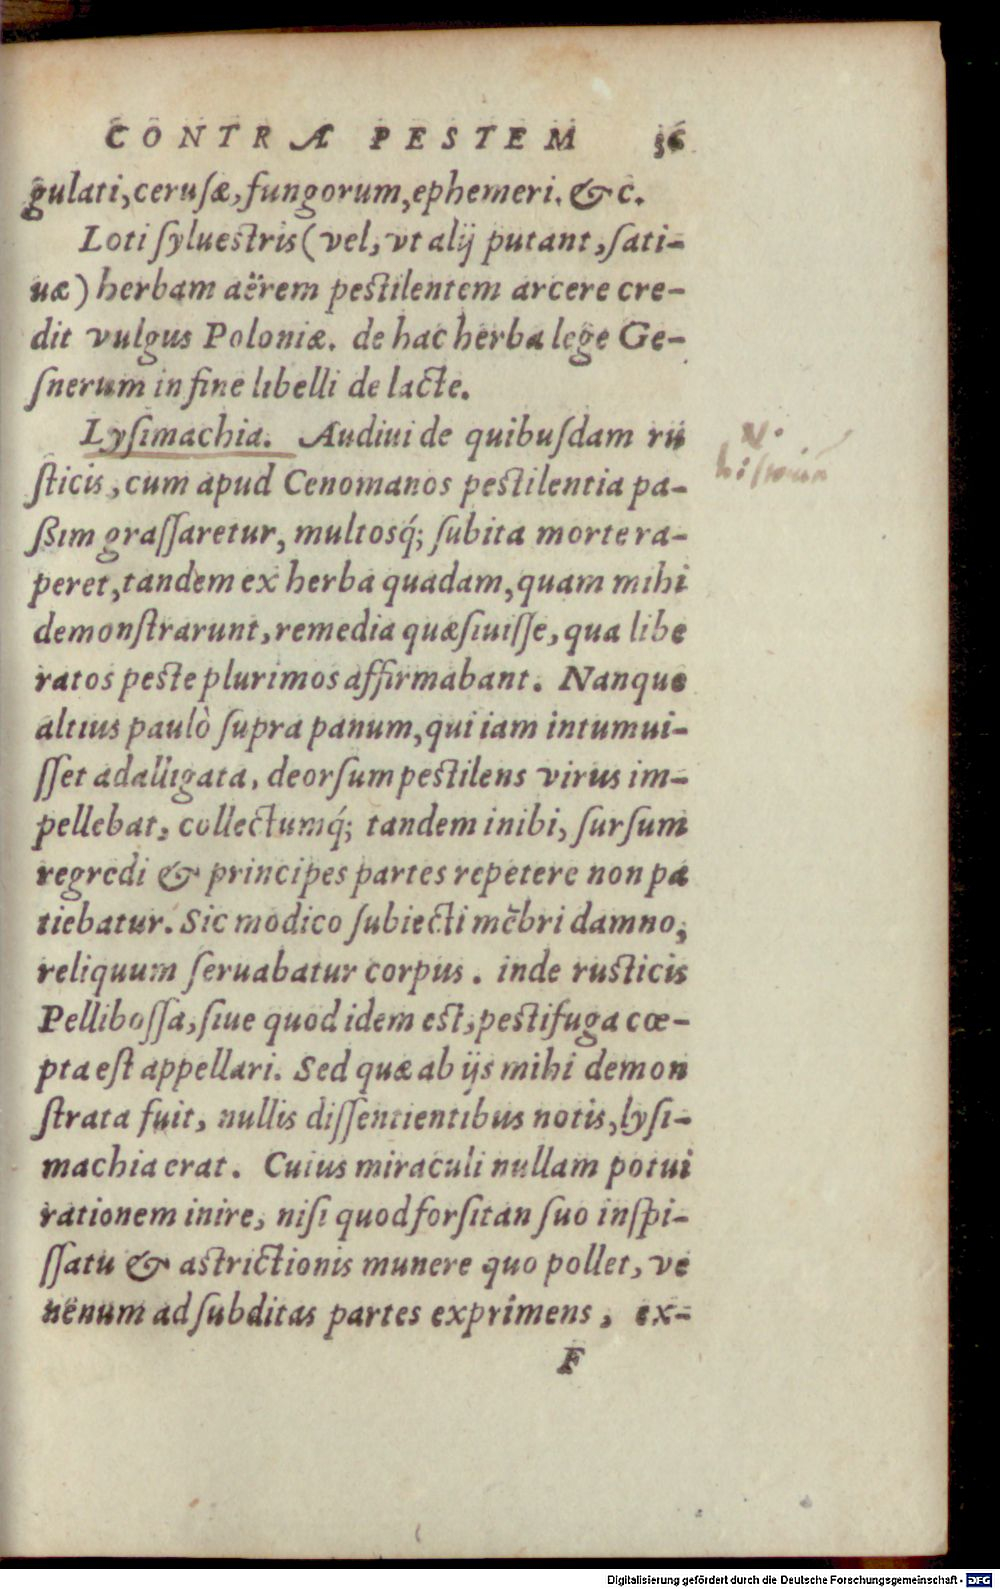 CONTRA PESTEM 36
gulati, cerusæ, fungorum, ephemeri. & c.
Loti syluestris (vel, vt alij putant, sati-
uæ) herbam aërem pestilentem arcere cre-
dit vulgus Poloniæ. de hac herba lege Ge-
snerum in fine libelli de lacte.
Lysimachia. Audiui de quibusdam rū
sticis, cum apud Cenomanos pestilentia pa-
ßim grassaretur, multosq́; subita morte ra-
peret, tandem ex herba quadam, quam mihi
demonstrarunt, remedia quæsiuisse, qua libe
ratos peste plurimos affirmabant. Nanque
altius paulò supra panum, qui iam intumui-
sset adalligata, deorsum pestilens virus im-
pellebat, collectumq́; tandem inibi, sursum
regredi & principes partes repetere non pa
tiebatur. Sic modico subiecti mēbri damno,
reliquum seruabatur corpus. inde rusticis
Pellibossa, siue quod idem est, pestifuga cœ-
pta est appellari. Sed quæ ab ijs mihi demon
strata fuit, nullis dissentientibus notis, lysi-
machia erat. Cuius miraculi nullam potui
rationem inire, nisi quod forsitan suo inspi-
ssatu & astrictionis munere quo pollet, ve
nenum ad subditas partes exprimens, ex-
F
N.
Digitalisierung gefördert durch die Deutsche Forschungsgemeinschaft - DFG